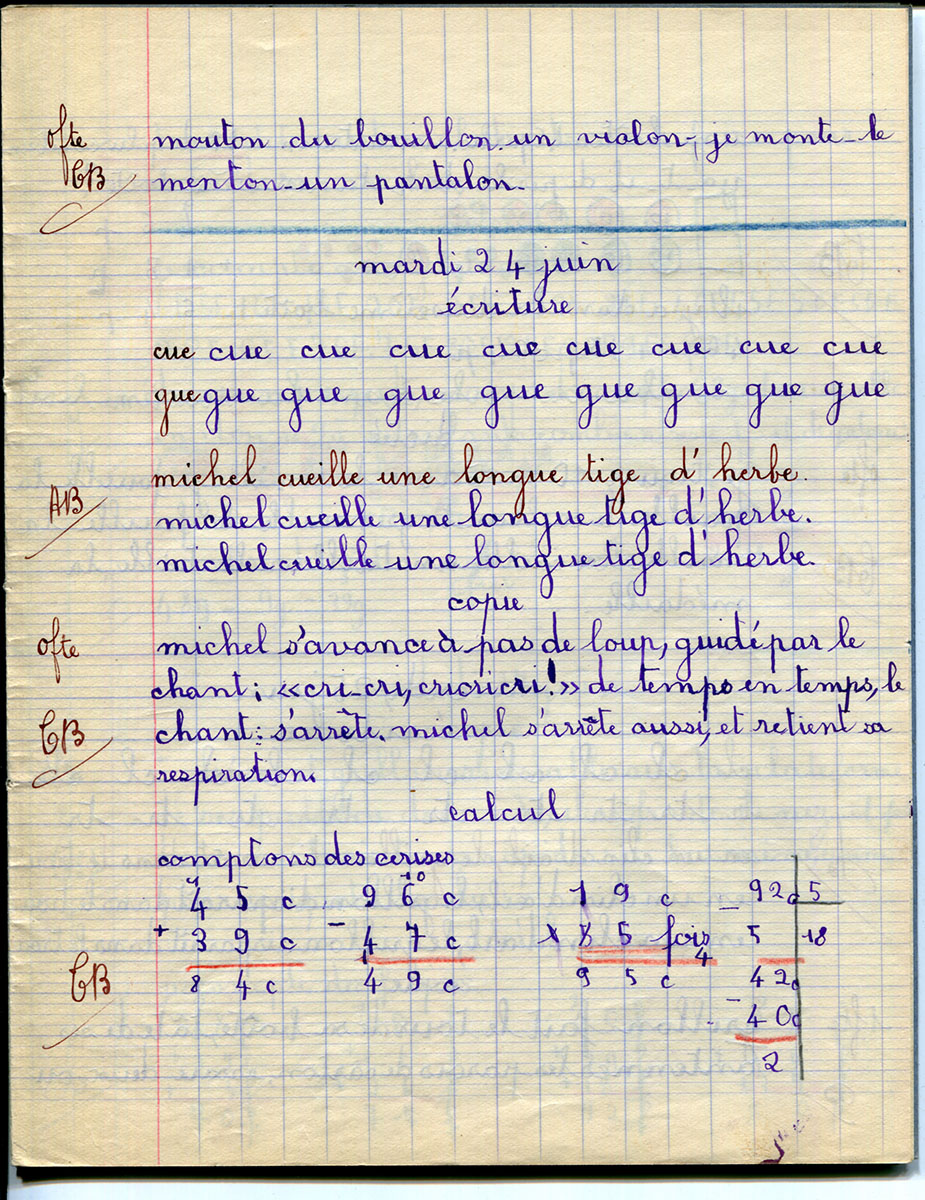 ofte mouton du bouillon. un violon, je monte - le
TB menton - un pantalon.
mardi 24 juin
écriture
cue cue cue cue cue cue cue cue cue
gue gue gue gue gue gue gue gue gue
michel cueille une longue tige d'herbe.
AB michel cueille une longue tige d'herbe.
michel cueille une longue tige d'herbe.
copie
ofte michel s'avance à pas de loup, guidé par le
chant; «cri-cri, cricricri!» de temps en temps, le
TB chant: s'arrête. michel s'arrête aussi, et retient sa
respiration.
calcul
comptons des cerises
45 c 96 c 19 c - 92c 5
+ 39 c - 47 c x 5 fois 5 18
TB 84 c 49 c 95 c 42c
- 40c
2